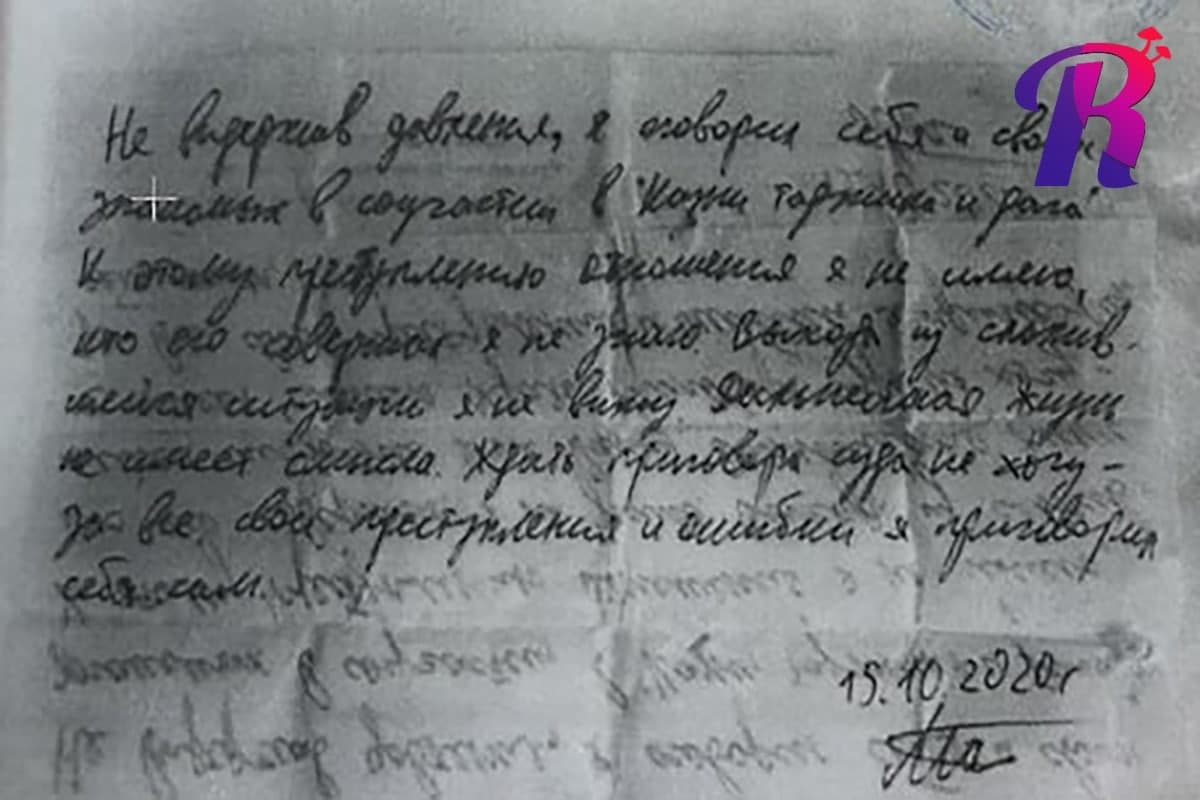 R
Не выдержав давления, я оговорил себя и своих
знакомых в соучастии в "Казни таджика и дага"
К этому преступлению отношения я не имею,
кто его совершил я не знаю. Выхода из сложив-
шейся ситуации я не вижу. Дальнейшая жизнь
не имеет смысла. Ждать приговора суда не хочу –
за все свои преступления и ошибки я приговорил
себя сам.
15.10.2020г